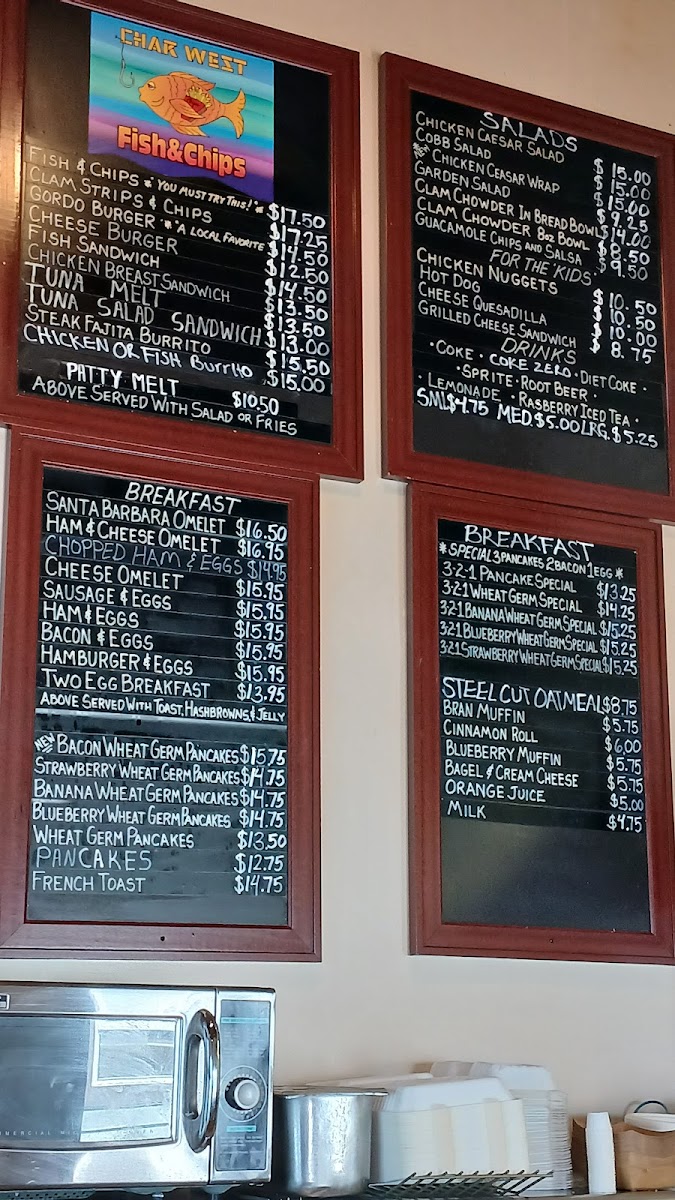 CHAR WEST
Fish&Chips
FISH & CHIPS *"YOU MUST TRY THIS!"* $17.50
CLAM STRIPS & CHIPS $17.25
GORDO BURGER *"A LOCAL FAVORITE $14.50
CHEESE BURGER $12.50
FISH SANDWICH $14.50
CHICKEN BREAST SANDWICH $13.50
TUNA MELT $13.50
TUNA SALAD SANDWICH $13.00
STEAK FAJITA BURRITO $15.50
CHICKEN OR FISH Burrito $15.00
PATTY MELT $10.50
ABOVE SERVED WITH SALAD OR FRIES
SALADS
CHICKEN CAESAR SALAD $15.00
COBB SALAD $15.00
NEW CHICKEN CEASAR WRAP $15.00
GARDEN SALAD $9.25
CLAM CHOWDER IN BREAD BOWL $14.00
CLAM CHOWDER 8oz BOWL $8.50
GUACAMOLE CHIPS AND SALSA $9.50
FOR THE KIDS
CHICKEN NUGGETS $10.50
HOT DOG $10.50
CHEESE QUESADILLA $10.00
GRILLED CHEESE SANDWICH $8.75
DRINKS
• COKE • COKE ZERO • DIET COKE •
• SPRITE • ROOT BEER •
• LEMONADE • RASBERRY ICED TEA •
SML$4.75 MED.$5.00 LRG.$5.25
BREAKFAST
SANTA BARBARA OMELET $16.50
HAM & CHEESE OMELET $16.95
CHOPPED HAM & EGGS $14.95
CHEESE OMELET $15.95
SAUSAGE & EGGS $15.95
HAM & EGGS $15.95
BACON & EGGS $15.95
HAMBURGER & EGGS $15.95
TWO EGG BREAKFAST $13.95
ABOVE SERVED WITH TOAST, HASHBROWNS, & JELLY
NEW BACON WHEAT GERM PANCAKES $15.75
STRAWBERRY WHEAT GERM PANCAKES $14.75
BANANA WHEAT GERM PANCAKES $14.75
BLUEBERRY WHEAT GERM PANCAKES $14.75
WHEAT GERM PANCAKES $13.50
PANCAKES $12.75
FRENCH TOAST $14.75
BREAKFAST
*SPECIAL 3 PANCAKES 2 BACON 1 EGG*
3-2-1 PANCAKE SPECIAL $13.25
3-2-1 WHEAT GERM SPECIAL $14.25
3-2-1 BANANA WHEAT GERM SPECIAL $15.25
3-2-1 BLUEBERRY WHEAT GERM SPECIAL $15.25
3-2-1 STRAWBERRY WHEAT GERM SPECIAL $15.25
STEEL CUT OATMEAL $8.75
BRAN MUFFIN $5.75
CINNAMON ROLL $6.00
BLUEBERRY MUFFIN $5.75
BAGEL & CREAM CHEESE $5.75
ORANGE JUICE $5.00
MILK $4.75